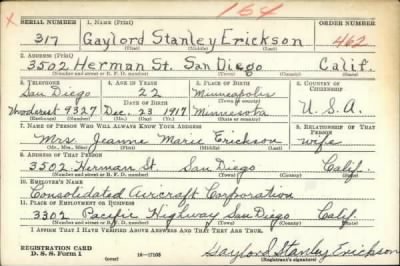 x 164
SERIAL NUMBER 1. NAME (Print) ORDER NUMBER
317 Gaylord Stanley Erickson 462
(First) (Middle) (Last)
2. ADDRESS (Print)
3502 Herman St. San Diego Calif.
(Number and street or R. F. D. number) (Town) (County) (State)
3. TELEPHONE 4. AGE IN YEARS 5. PLACE OF BIRTH 6. COUNTRY OF CITIZENSHIP
San Diego 22 Minneapolis
DATE OF BIRTH
Woodcrest 9327 Dec. 23 1917 Minnesota U.S.A.
(Exchange) (Number) (Mo.) (Day) (Yr.) (State or country)
7. NAME OF PERSON WHO WILL ALWAYS KNOW YOUR ADDRESS 8. RELATIONSHIP OF THAT PERSON
Mrs. Jeanne Marie Erickson wife
(Mr., Mrs., Miss) (First) (Middle) (Last)
9. ADDRESS OF THAT PERSON
3502 Herman St San Diego Calif.
(Number and street or R. F. D. number) (Town) (County) (State)
10. EMPLOYER'S NAME
Consolidated Aircraft Corporation
11. PLACE OF EMPLOYMENT OR BUSINESS
3302 Pacific Highway San Diego Calif.
(Number and street or R. F. D. number) (Town) (County) (State)
I AFFIRM THAT I HAVE VERIFIED ABOVE ANSWERS AND THAT THEY ARE TRUE.
REGISTRATION CARD
D. S. S. Form 1 (over) 16—17105 Gaylord Stanley Erickson
(Registrant's signature)